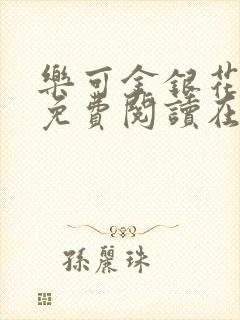 樂可金銀花
免費閱讀在
孫麗珠